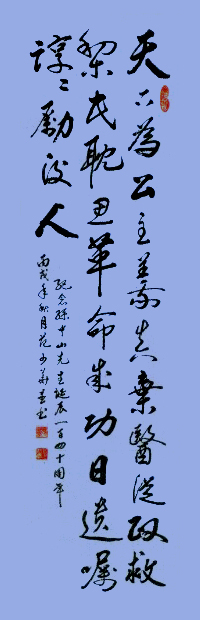 天下為公主義真棄醫從政救
黎民耽思革命成功日遺囑
諄諄勵後人
紀念孫中山先生誕辰一百四十周年
丙戌年秋月范少華書